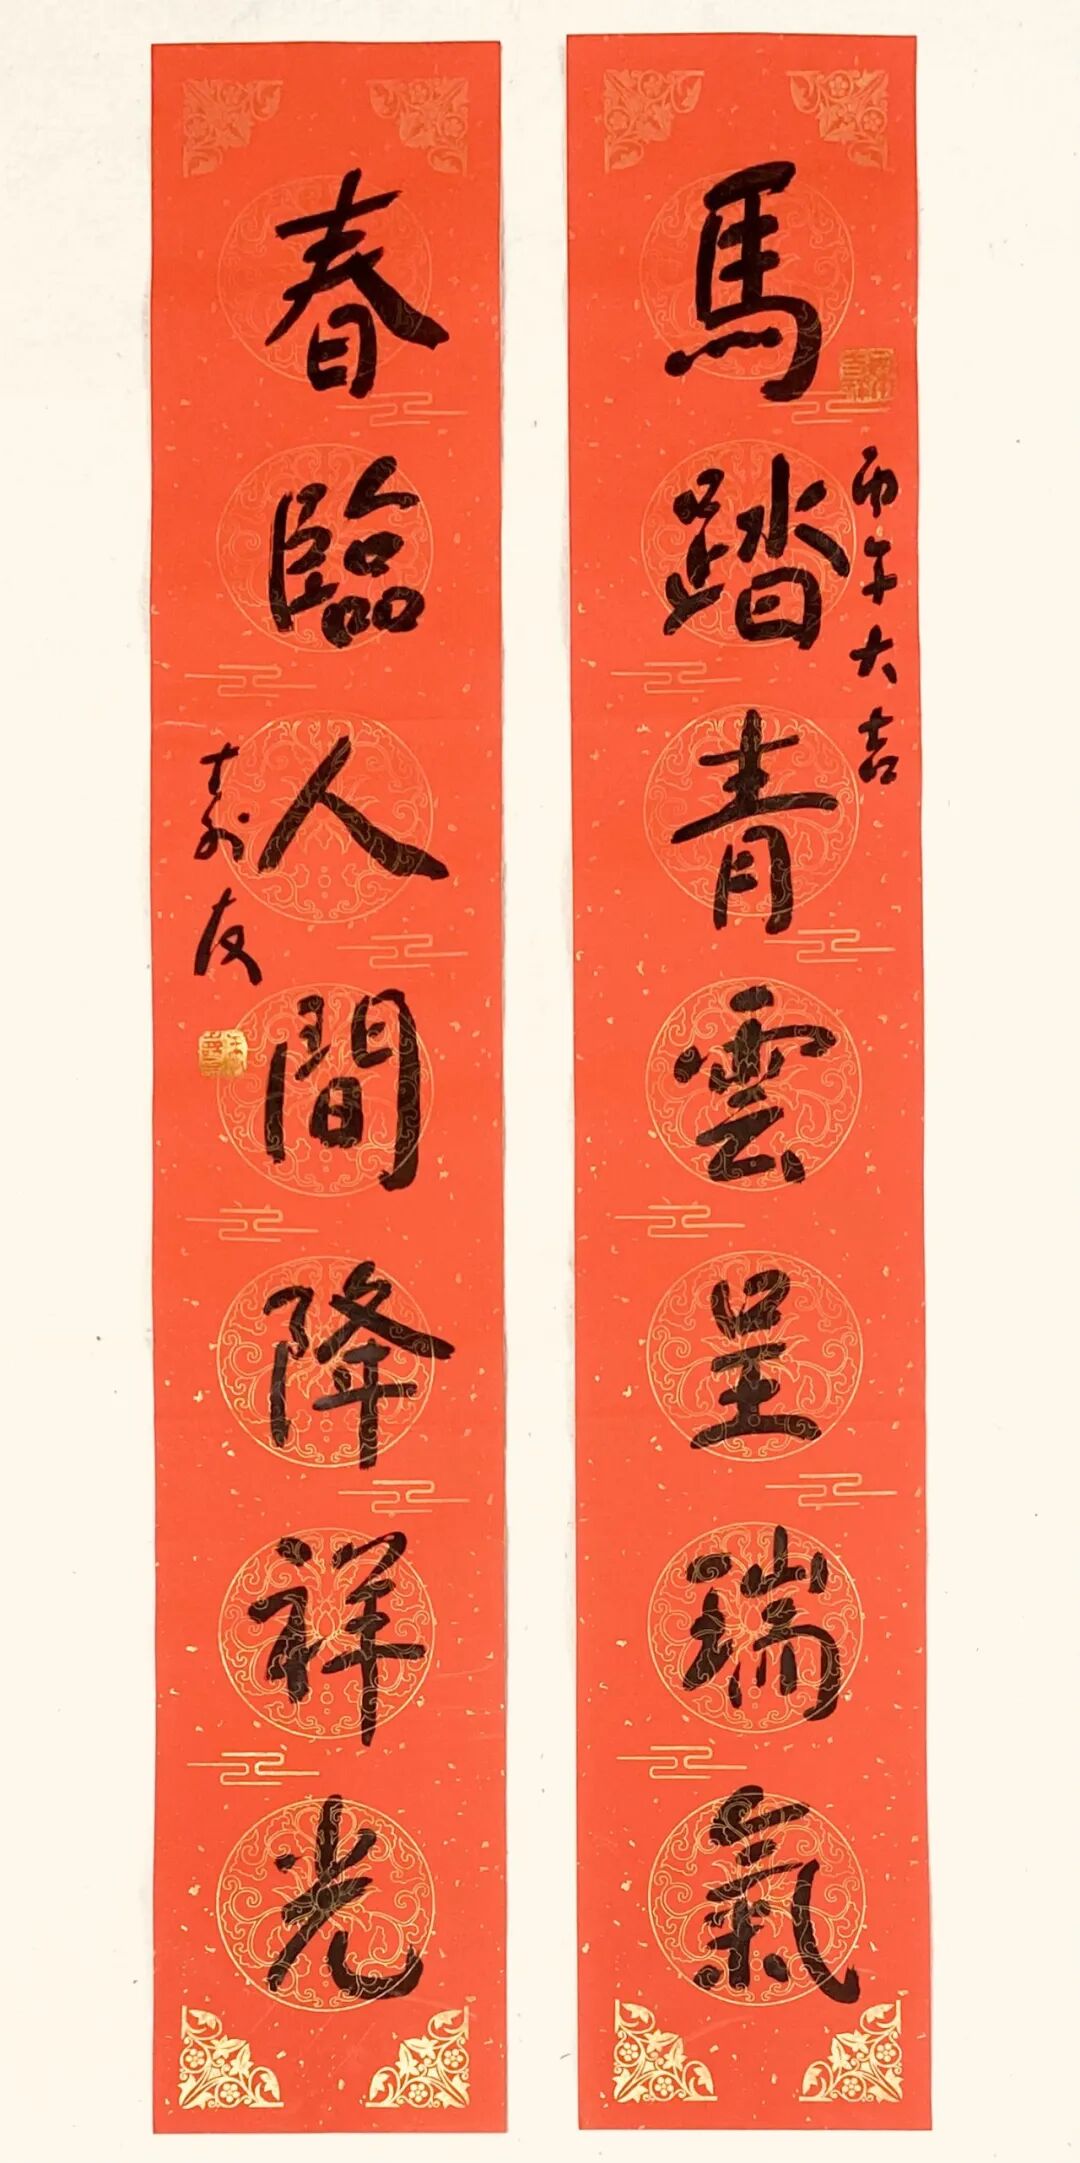 馬踏青雲呈瑞氣
丙午大吉
春臨人間降祥光
友